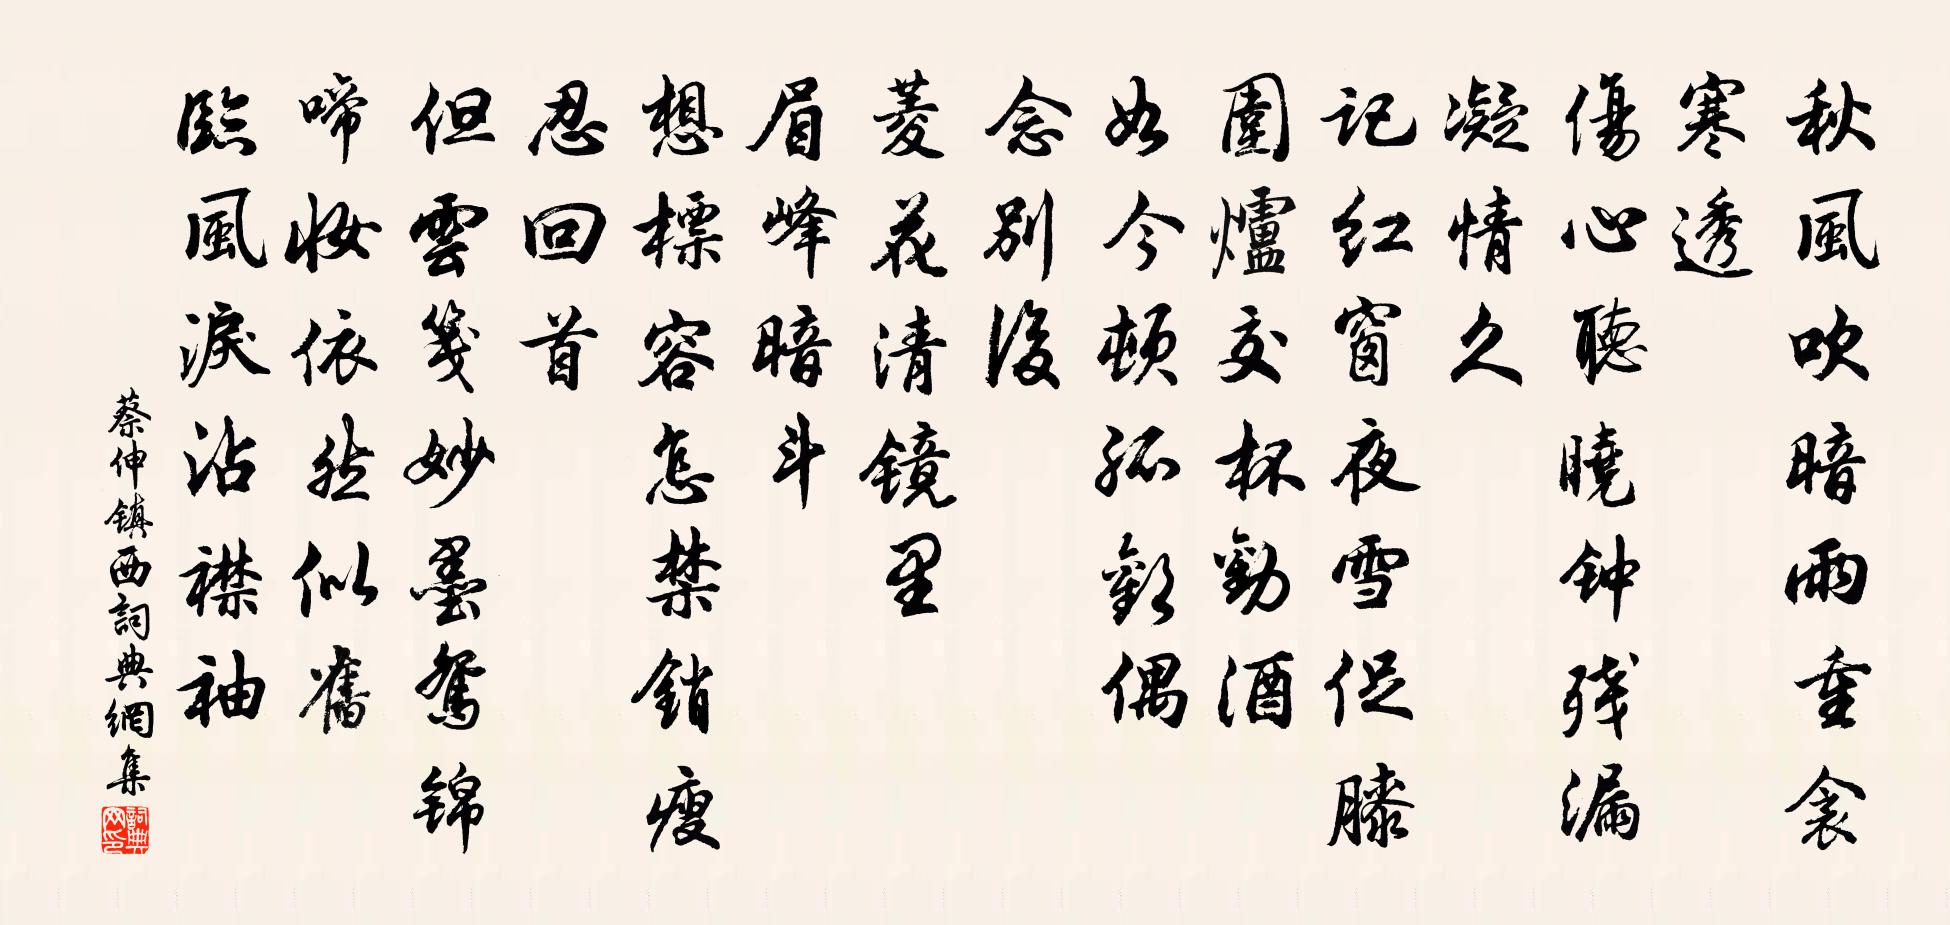 秋風吹暗雨重衾
寒透
傷心聽曉钟残漏
凝情久
記红窗夜雪促膝
圍爐交杯勸酒
如今頓孤歡偶
念别後
菱花清镜里
眉峰暗斗
想標容怎禁銷瘦
忍回首
但雲笺妙墨鸳锦
啼妝依然似舊
臨風淚沾襟袖
蔡伸鎮西詞典網集
詞典网印